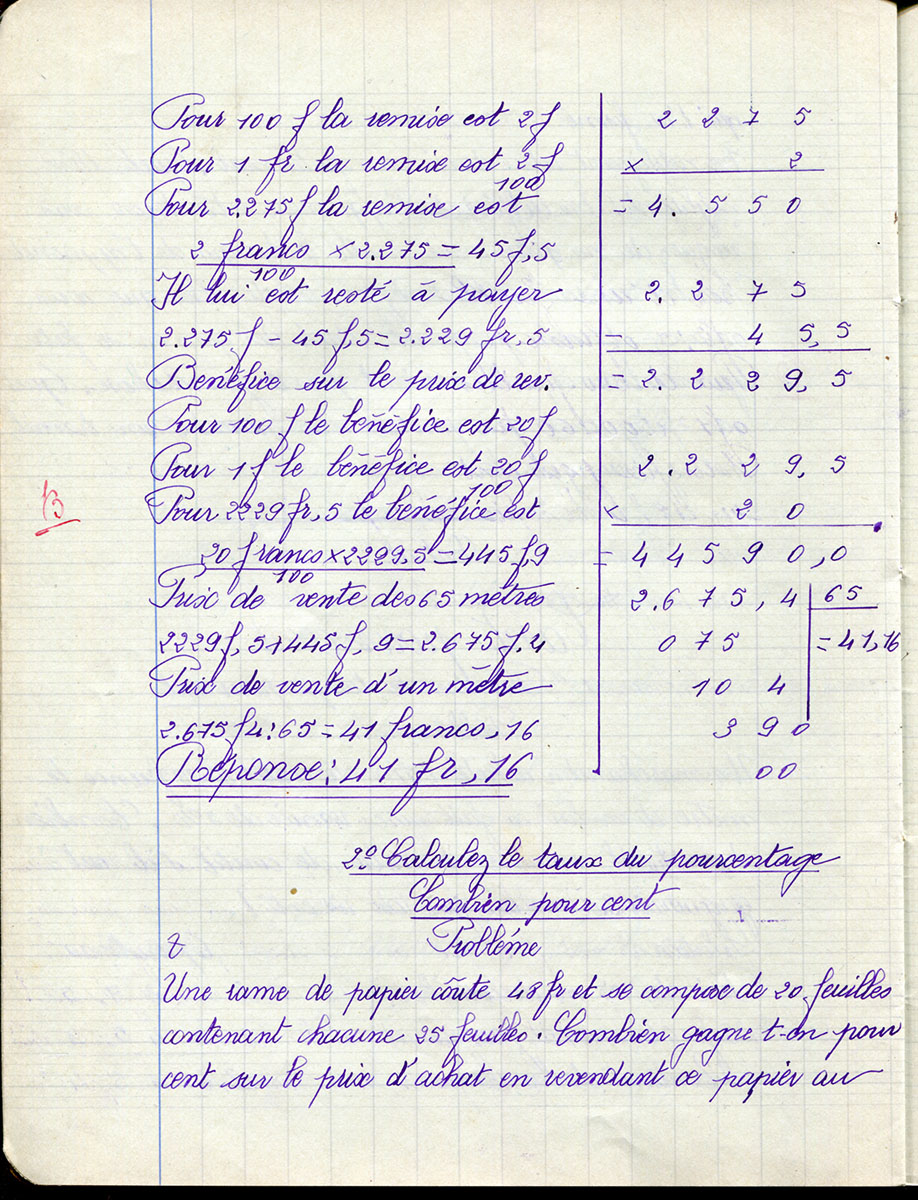 Pour 100 f la remise est 2 f
Pour 1 fr la remise est 2 f
100
Pour 2275 f la remise est
2 francs × 2.275 = 45 f,5
100
Il lui est resté à payer
2.275 f - 45 f,5 = 2.229 fr,5
Bénéfice sur le prix de rev.
Pour 100 f le bénéfice est 20 f
Pour 1 f le bénéfice est 20 f
100
Pour 2229 fr,5 le bénéfice est
20 francs × 2299,5 = 445 f,9
100
Prix de vente des 65 mètres
2229 f,5 + 445 f,9 = 2.675 f.4
Prix de vente d'un mètre
2.675 f 4 : 65 = 41 francs,16
Réponse : 41 fr,16
2 2 7 5
× 2
= 4. 5 5 0
2. 2 7 5
- 4 5,5
= 2. 2 2 9,5
2. 2 2 9,5
× 2 0
= 4 4 5 9 0,0
2.6 7 5,4 65
0 7 5 = 41,16
10 4
3 9 0
00
B
2º Calculez le taux du pourcentage
Combien pour cent
Problème
8
Une rame de papier coûte 48 fr et se compose de 20 feuilles
contenant chacune 25 feuilles. Combien gagne t-on pour
cent sur le prix d'achat en revendant ce papier au